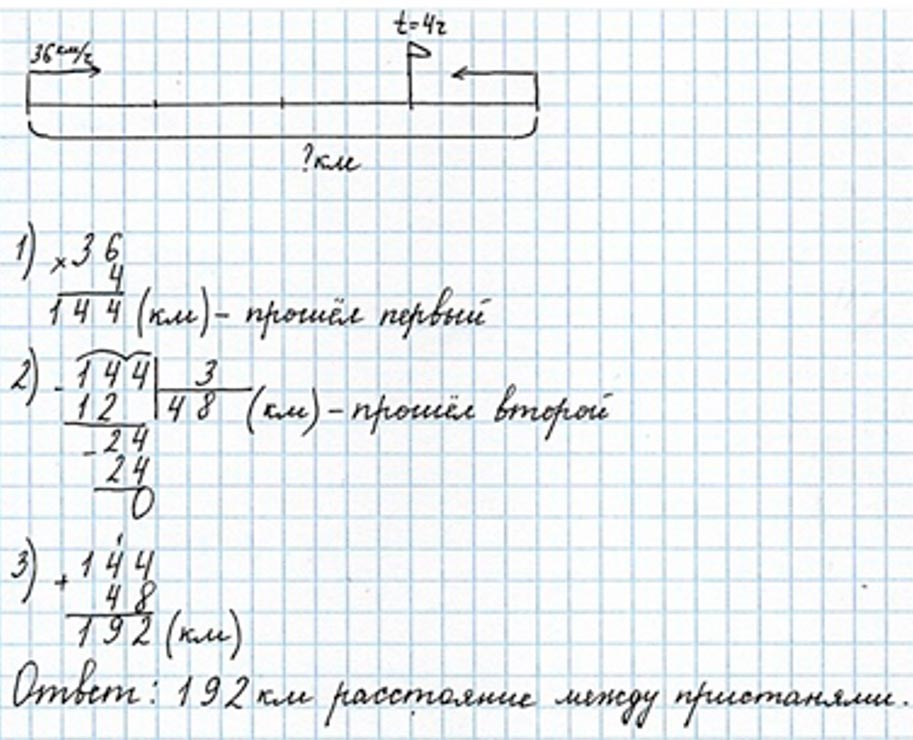 t=4ч
36 км/ч
? км
1) × 36
4
144 (км) – прошёл первый
2) - 144 | 3
12 | 48 (км) – прошёл второй
- 24
24
0
3) + 144
48
192 (км)
Ответ: 192 км расстояние между пристанями.